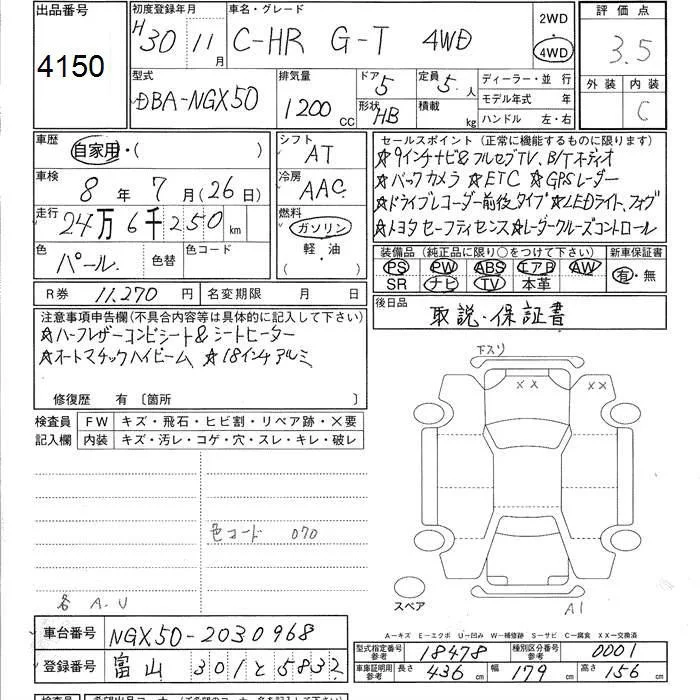 出品番号
4150
初度登録年月
H30 11月
車名・グレード
C-HR G-T 4WD
2WD
4WD
評価点
3.5
外装 内装
C
型式
DBA-NGX50
排気量
1200 CC
ドア 5
形状 HB
定員 5 人
積載 kg
ディーラー・並行
モデル年式 年
ハンドル 左・右
車歴
自家用・( )
車検
8年 7月(26日)
走行
24万6千250 km
色
パール.
色替
色コード
シフト
AT
冷房
AAC
燃料
ガソリン
軽・油
( )
セールスポイント (正常に機能するものに限ります)
☆9インチナビ&フルセグTV、B/Tオーディオ
☆バックカメラ ☆ETC ☆GPSレーダー
☆ドライブレコーダー前後タイプ ☆LEDライト、フォグ
☆トヨタセーフティセンス☆レーダークルーズコントロール
装備品 (純正品に限り○をつけて下さい)
PS PW ABS エアB AW
SR ナビ TV 本革
新車保証書
有・無
R券 11,270円 名変期限 月 日
後日品
取説・保証書
注意事項申告欄(不具合内容等は具体的に記入して下さい)
☆ハーフレザーコンビシート&シートヒーター
☆オートマチックハイビーム ☆18インチアルミ
修復歴 有〔箇所 〕
検査員
記入欄
FW キズ・飛石・ヒビ割・リペア跡・×要
内装 キズ・汚レ・コゲ・穴・スレ・キレ・破レ
下スリ
XX
XX
色コード 070
各 A.U
スペア
A1
A-キズ E-エクボ U-凹み W-補修跡 S-サビ C-腐食 XX-交換済
車台番号 NGX50-2030968
登録番号 富山 301と5832
型式指定番号 参考 18478 種別区分番号 参考 0001
車庫証明用 参考 長さ 436cm 幅 179cm 高さ 156cm